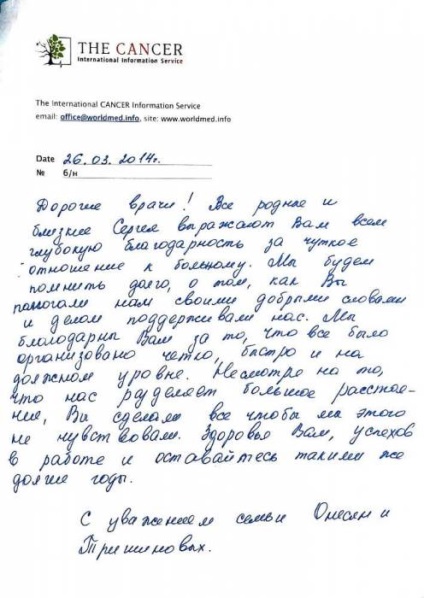 THE CANCER
International Information Service
The International CANCER Information Service
email: office@worldmed.info, site: www.worldmed.info
Date 26.03.2014г.
№ б/н
Дорогие врачи! Все родные и
близкие Сергея выражают Вам всем
глубокую благодарность за чуткое
отношение к больному. Мы будем
помнить долго, о том, как Вы
помогали нам своими добрыми словами
и делом поддерживали нас. Мы
благодарны Вам за то, что все было
организовано четко, быстро и на
должном уровне. Несмотря на то,
что нас разделяет большое расстоя-
ние, Вы сделали все чтобы мы этого
не чувствовали. Здоровья Вам, успехов
в работе и оставайтесь такими же
долгие годы.
С уважением семьи Онесян и
Тришиновых.